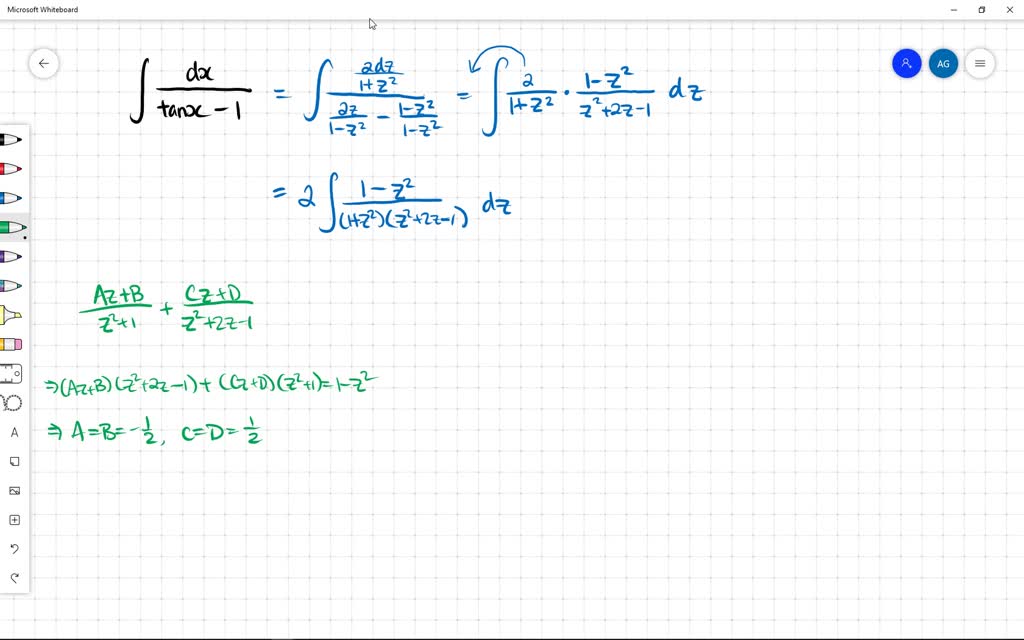 Microsoft Whiteboard
AG
∫ dx/(tanx − 1) = ∫ (2dz/(1+z²))/(2z/(1−z²) − (1−z²)/(1−z²)) = ∫ 2/(1+z²) · (1−z²)/(z²+2z−1) dz
= 2 ∫ (1−z²)/((1+z²)(z²+2z−1)) dz
(Az+B)/(z²+1) + (Cz+D)/(z²+2z−1)
⇒ (Az+B)(z²+2z−1) + (Cz+D)(z²+1) = 1−z²
⇒ A=B=−1/2, C=D=1/2
A